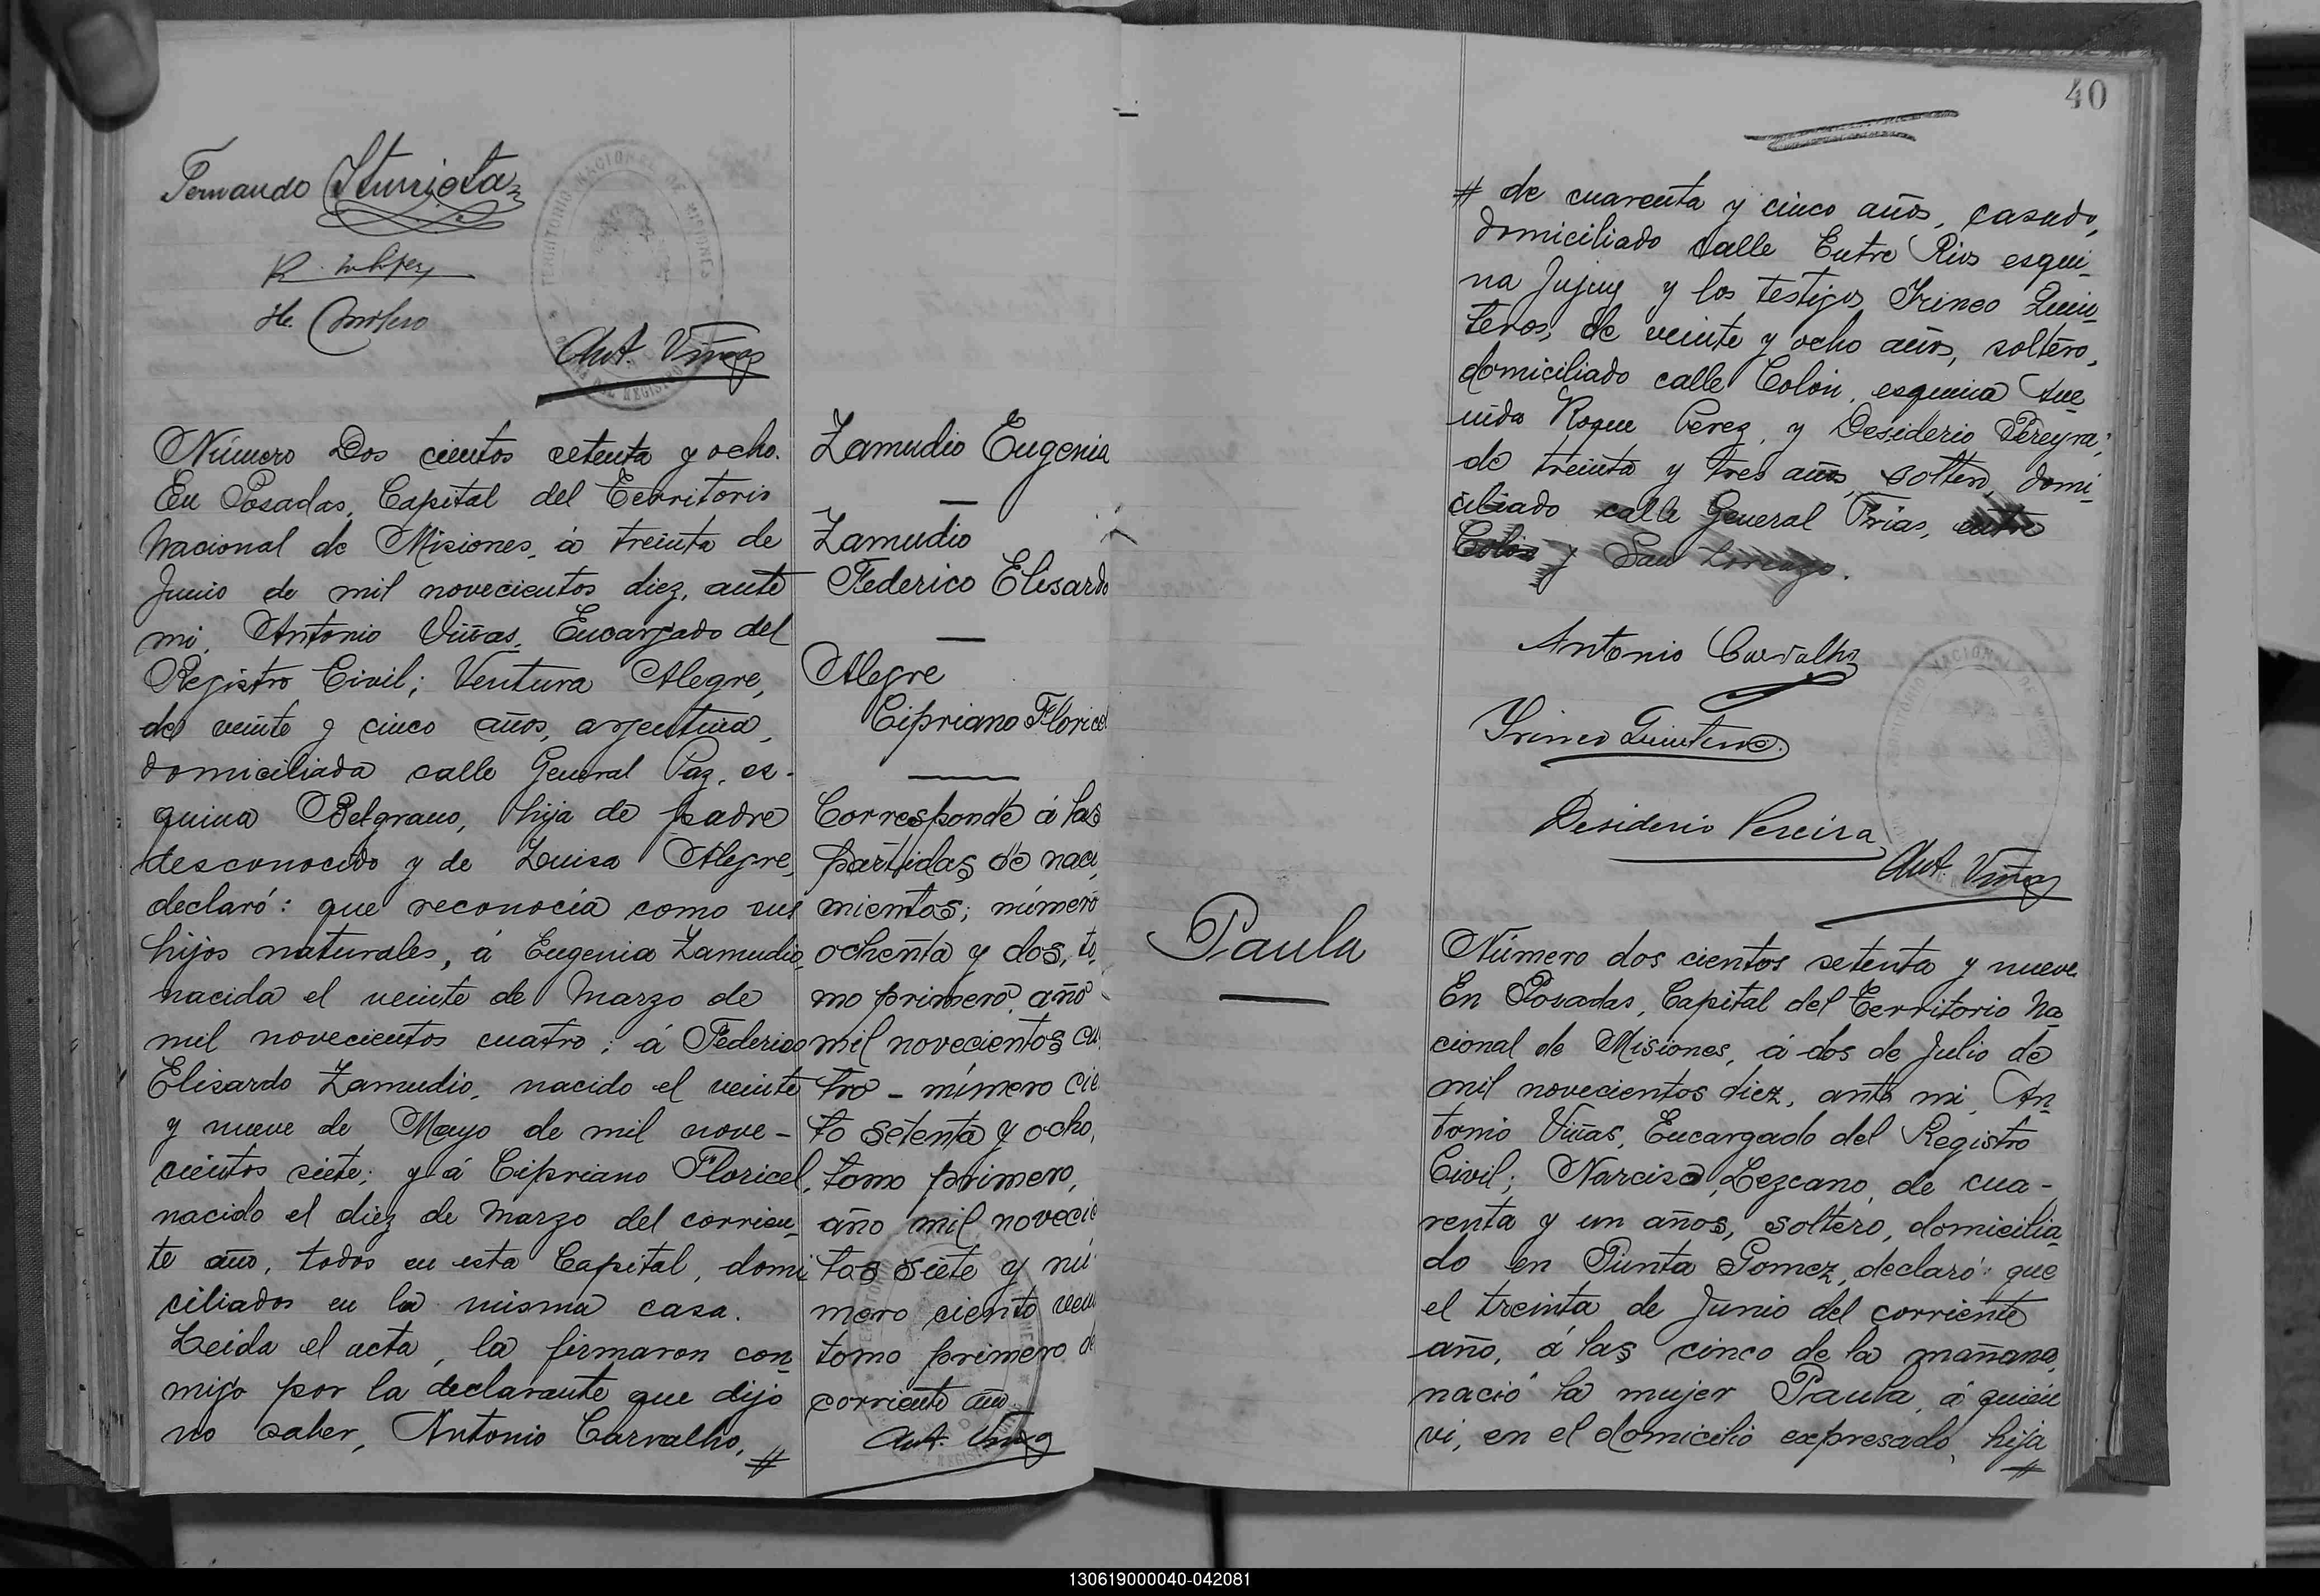 Fernando Iturrieta
Ant. Viñas
Número Dos cientos setenta y ocho.
En Posadas, Capital del Territorio
Nacional de Misiones, á treinta de
Junio de mil novecientos diez, ante
mi, Antonio Viñas, Encargado del
Registro Civil; Ventura Alegre,
de veinte y cinco años, argentina,
domiciliada calle General Paz, es-
quina Belgrano, hija de padre
desconocido y de Luisa Alegre,
declaró: que reconocía como sus
hijos naturales, á Eugenia Zamudio,
nacida el veinte de Marzo de
mil novecientos cuatro; á Federico
Elisardo Zamudio, nacido el veinte
y nueve de Mayo de mil nove-
cientos siete; y á Cipriano Floricel,
nacido el diez de Marzo del corrien-
te año, todos en esta Capital, domi-
ciliados en la misma casa.
Leida el acta, la firmaron con-
migo por la declarante que dijo
no saber, Antonio Carvalho, #
Zamudio Eugenia
Zamudio
Federico Elisardo
Alegre
Cipriano Floricel
Corresponde á las
partidas de naci
mientos; número
ochenta y dos, to-
mo primero, año
mil novecientos cu
tro - número cie
to setenta y ocho,
tomo primero,
año mil novecie
tos siete y nú
mero ciento vein
tomo primero de
corriente año
Ant. Viñas
40
# de cuarenta y cinco años, casado,
domiciliado calle Entre Rios esqui-
na Jujuy y los testigos Irineo Quin-
teros, de veinte y ocho años, soltero,
domiciliado calle Colón, esquina Ave-
nida Roque Perez, y Desiderio Pereyra,
de treinta y tres años, soltero, domi-
ciliado calle General Frias, entre
Colón y San Lorenzo.
Antonio Carvalho
Irineo Quinteros
Desiderio Pereira
Ant. Viñas
Paula
Número dos cientos setenta y nueve
En Posadas, Capital del Territorio Na
cional de Misiones, á dos de Julio de
mil novecientos diez, ante mi, An
tonio Viñas, Encargado del Registro
Civil; Narciso Lezcano, de cua-
renta y un años, soltero, domicilia
do en Punta Gomez, declaró: que
el treinta de Junio del corriente
año, á las cinco de la mañana,
nació la mujer Paula, á quien
vi, en el domicilio expresado, hija
#
130619000040-042081